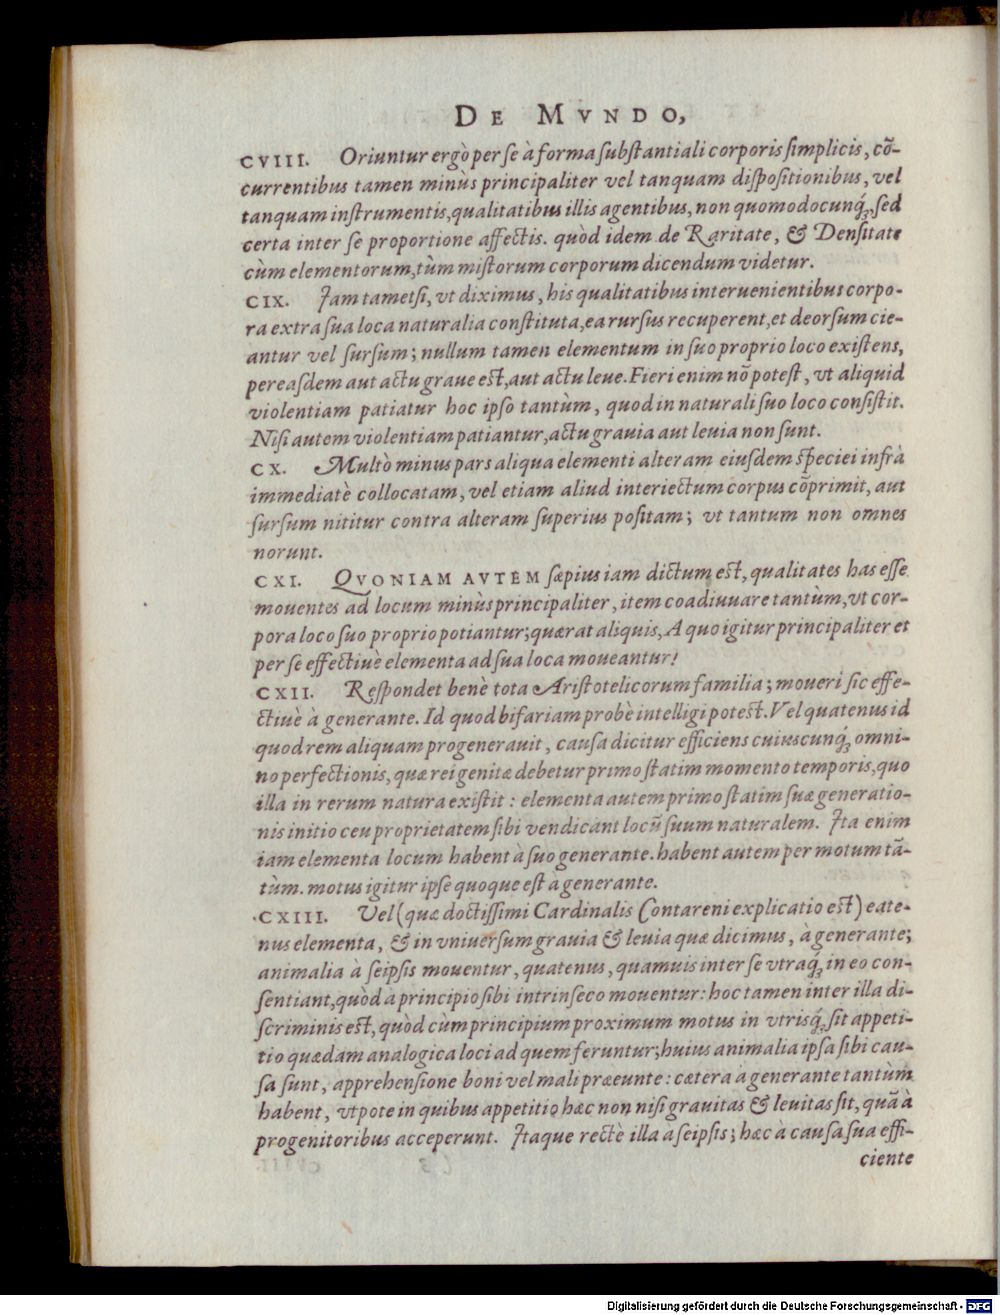 DE MVNDO,
CVIII. Oriuntur ergò per se à forma substantiali corporis simplicis, cõ-
currentibus tamen minùs principaliter vel tanquam dispositionibus, vel
tanquam instrumentis, qualitatibus illis agentibus, non quomodocunq́ꝫ, sed
certa inter se proportione affectis. quòd idem de Raritate, & Densitate
cùm elementorum, tùm mistorum corporum dicendum videtur.
CIX. Jam tametsi, vt diximus, his qualitatibus interuenientibus corpo-
ra extra sua loca naturalia constituta, ea rursus recuperent, et deorsum cie-
antur vel sursum; nullum tamen elementum in suo proprio loco existens,
per easdem aut actu graue est, aut actu leue. Fieri enim nõ potest, vt aliquid
violentiam patiatur hoc ipso tantùm, quod in naturali suo loco consistit.
Nisi autem violentiam patiantur, actu grauia aut leuia non sunt.
CX. Multò minus pars aliqua elementi alteram eiusdem speciei infrà
immediatè collocatam, vel etiam aliud interiectum corpus cõprimit, aut
sursum nititur contra alteram superius positam; vt tantum non omnes
norunt.
CXI. QVONIAM AVTEM sæpius iam dictum est, qualitates has esse
mouentes ad locum minùs principaliter, item coadiuuare tantùm, vt cor-
pora loco suo proprio potiantur; quærat aliquis, A quo igitur principaliter et
per se effectiuè elementa ad sua loca moueantur?
CXII. Respondet benè tota Aristotelicorum familia; moueri sic effe-
ctiuè à generante. Id quod bifariam probè intelligi potest. Vel quatenus id
quod rem aliquam progenerauit, causa dicitur efficiens cuiuscunq́ꝫ omni-
no perfectionis, quæ rei genitæ debetur primo statim momento temporis, quo
illa in rerum natura existit: elementa autem primo statim suæ generatio-
nis initio ceu proprietatem sibi vendicant locũ suum naturalem. Ita enim
iam elementa locum habent à suo generante. habent autem per motum tã-
tùm. motus igitur ipse quoque est à generante.
CXIII. Vel (quæ doctissimi Cardinalis Contareni explicatio est) eate-
nus elementa, & in vniuersum grauia & leuia quæ dicimus, à generante;
animalia à seipsis mouentur, quatenus, quamuis inter se vtraq́ꝫ in eo con-
sentiant, quòd à principio sibi intrinseco mouentur: hoc tamen inter illa di-
scriminis est, quòd cùm principium proximum motus in vtrisq́ꝫ sit appeti-
tio quædam analogica loci ad quem feruntur; huius animalia ipsa sibi cau-
sa sunt, apprehensione boni vel mali præeunte: cætera à generante tantùm
habent, vtpote in quibus appetitio hæc non nisi grauitas & leuitas sit, quã à
progenitoribus acceperunt. Itaque rectè illa à seipsis; hæc à causa sua effi-
ciente
Digitalisierung gefördert durch die Deutsche Forschungsgemeinschaft - DFG